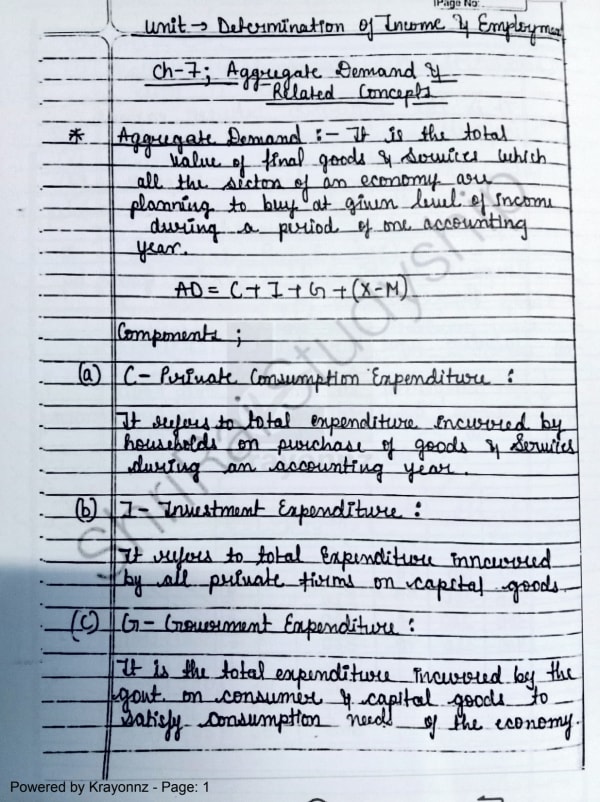 Page No:
Unit → Determination of Income & Employment
Ch-7; Aggregate Demand &
Related Concepts
* Aggregate Demand :- It is the total
value of final goods & services which
all the sectors of an economy are
planning to buy at given level of income
during a period of one accounting
year.
AD = C + I + G + (X-M)
Components ;
(a) C - Private Consumption Expenditure :
It refers to total expenditure incurred by
households on purchase of goods & Services
during an accounting year.
(b) I - Investment Expenditure :
It refers to total Expenditure inncurred
by all private firms on capital goods.
(C) G - Gouerment Expenditure :
It is the total expenditure incurred by the
govt on consumer & capital goods to
satisfy consumption needs of the economy.
Powered by Krayonnz - Page: 1